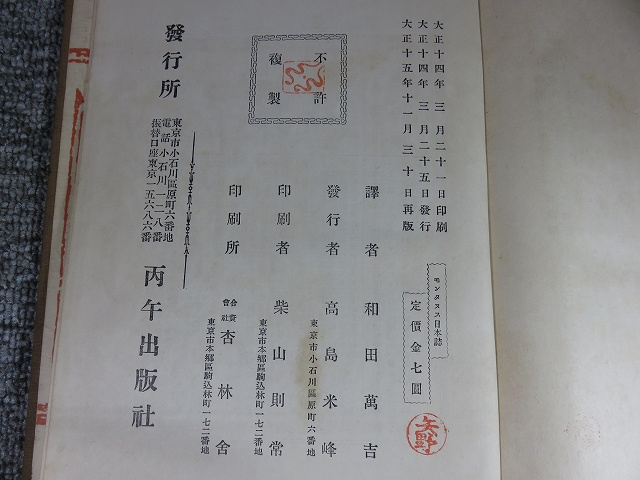 大正十四年三月二十一日印刷
大正十四年三月二十五日發行
大正十五年十一月三十日再版
不許
複製
モンタヌス日本誌
定價金七圓
矢野
譯者 和田萬吉
發行者 高島米峰
東京市小石川區原町六番地
印刷者 柴山則常
東京市本鄕區駒込林町一七二番地
印刷所 合資會社 杏林舍
東京市本鄕區駒込林町一七二番地
發行所
東京市小石川區原町六番地
電話小石川一一二八番
振替口座東京一五六八六番
丙午出版社